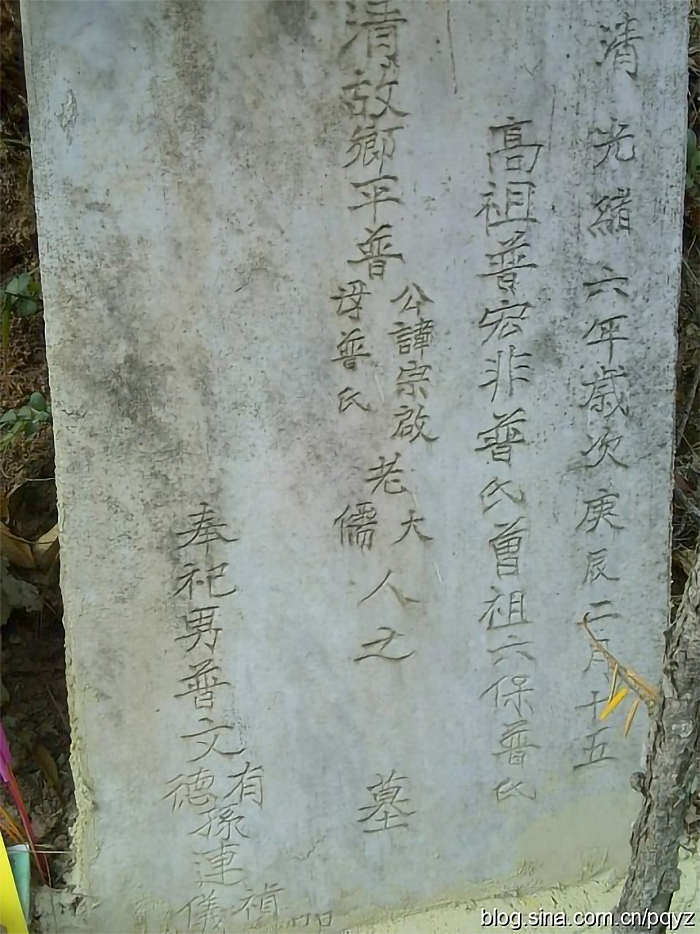 清光緒六年歲次庚辰二月十五
高祖普宏非普氏曾祖六保普氏
清故鄉平普
公諱宗啟
母普氏
老
大
儒
人之墓
奉祀男普文
有
德
孫連
禎
儀
blog.sina.com.cn/pqyz